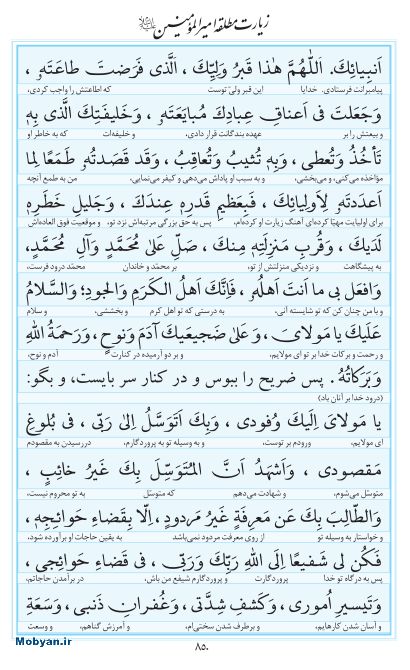 زیارت مطلقه امیرالمؤمنین علیه السلام
اَنبِیائِكَ. اَللّٰهُمَّ هٰذا قَبرُ وَلِیِّكَ، اَلَّذی فَرَضتَ طاعَتَهُ،
پیامبرانت فرستادی. خدایا این قبر ولیّ توست که اطاعتش را واجب کردی،
وَجَعَلتَ فی اَعناقِ عِبادِكَ مُبایَعَتَهُ، وَخَلیفَتِكَ الَّذی بِهِ
و بیعتش را بر عهده بندگانت قرار دادی، و خلیفه‌ات که به خاطر او
تَأخُذُ وَتُعطی، وَبِهِ تُثیبُ وَتُعاقِبُ، وَقَد قَصَدتُهُ طَمَعًا لِما
مؤاخذه می‌کنی، و می‌بخشی، و به سبب او پاداش می‌دهی و کیفر می‌نمایی، من به طمع آنچه
اَعدَدتَهُ لِاَولِیائِكَ، فَبِعَظیمِ قَدرِهِ عِندَكَ، وَجَلیلِ خَطَرِهِ
برای اولیایت مهیّا کرده‌ای آهنگ زیارت او کرده‌ام، پس به حق بزرگی مرتبه‌اش نزد تو، و موقعیت فوق العاده‌اش
لَدَیكَ، وَقُربِ مَنزِلَتِهِ مِنكَ، صَلِّ عَلیٰ مُحَمَّدٍ وَآلِ مُحَمَّدٍ،
به پیشگاهت و نزدیکی منزلتش از تو، بر محمّد و خاندان محمّد درود فرست،
وَافعَل بی ما اَنتَ اَهلُهُ، فَاِنَّكَ اَهلُ الكَرَمِ وَالجودِ؛ وَالسَّلامُ
و با من چنان کن که تو شایسته آنی، به درستی که تو اهل کرم و بخششی، و سلام
عَلَیكَ یا مَولایَ، وَعَلیٰ ضَجیعَیكَ آدَمَ وَنوحٍ، وَرَحمَةُ اللهِ
و رحمت و برکات خدا بر تو ای مولایم، و بر دو آرمیده در کنارت آدم و نوح،
وَبَرَكاتُهُ. پس ضریح را ببوس و در کنار سر بایست، و بگو:
(درود خدا بر آنان باد)
یا مَولایَ اِلَیكَ وُفودی، وَبِكَ اَتَوَسَّلُ اِلیٰ رَبّی، فی بُلوغِ
ای مولایم، ورودم بر توست، و به وسیله تو به پروردگارم، در رسیدن به مقصودم
مَقصودی، وَاَشهَدُ اَنَّ المُتَوَسِّلَ بِكَ غَیرُ خائِبٍ،
متوسّل می‌شوم، و شهادت می‌دهم که متوسّل به تو محروم نیست،
وَالطّالِبَ بِكَ عَن مَعرِفَةٍ غَیرُ مَردودٍ، اِلّا بِقَضاءِ حَوائِجِهِ،
و خواستار به وسیله تو از روی معرفت مردود نمی‌باشد به یقین حاجات او برآورده شود،
فَكُن لی شَفیعًا اِلَی اللهِ رَبِّكَ وَرَبّی، فی قَضاءِ حَوائِجی،
پس به درگاه تو خدا پروردگارت و پروردگارم شفیع من باش، در برآمدن حاجاتم،
وَتَیسیرِ اُموری، وَكَشفِ شِدَّتی، وَغُفرانِ ذَنبی، وَسَعَةِ
و آسان شدن کارهایم، و برطرف شدن سختی‌ام، و آمرزش گناهم، و وسعت
۸۵۰
Mobyan.ir